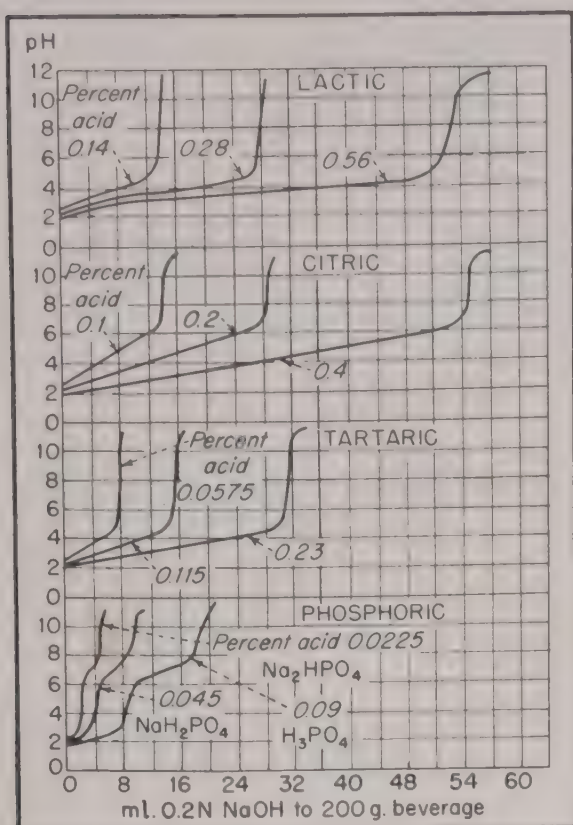 pH
12
LACTIC
Percent
acid
0.14
0.28
0.56
10
8
6
4
2
0
CITRIC
Percent
acid
0.1
0.2
0.4
10
8
6
4
2
0
TARTARIC
Percent
acid
0.0575
0.115
0.23
10
8
6
4
2
0
PHOSPHORIC
Percent acid 0.0225
Na₂HPO₄
0.045
NaH₂PO₄
0.09
H₃PO₄
10
8
6
4
2
0
0 8 16 24 32 40 48 54 60
ml. 0.2N NaOH to 200 g. beverage